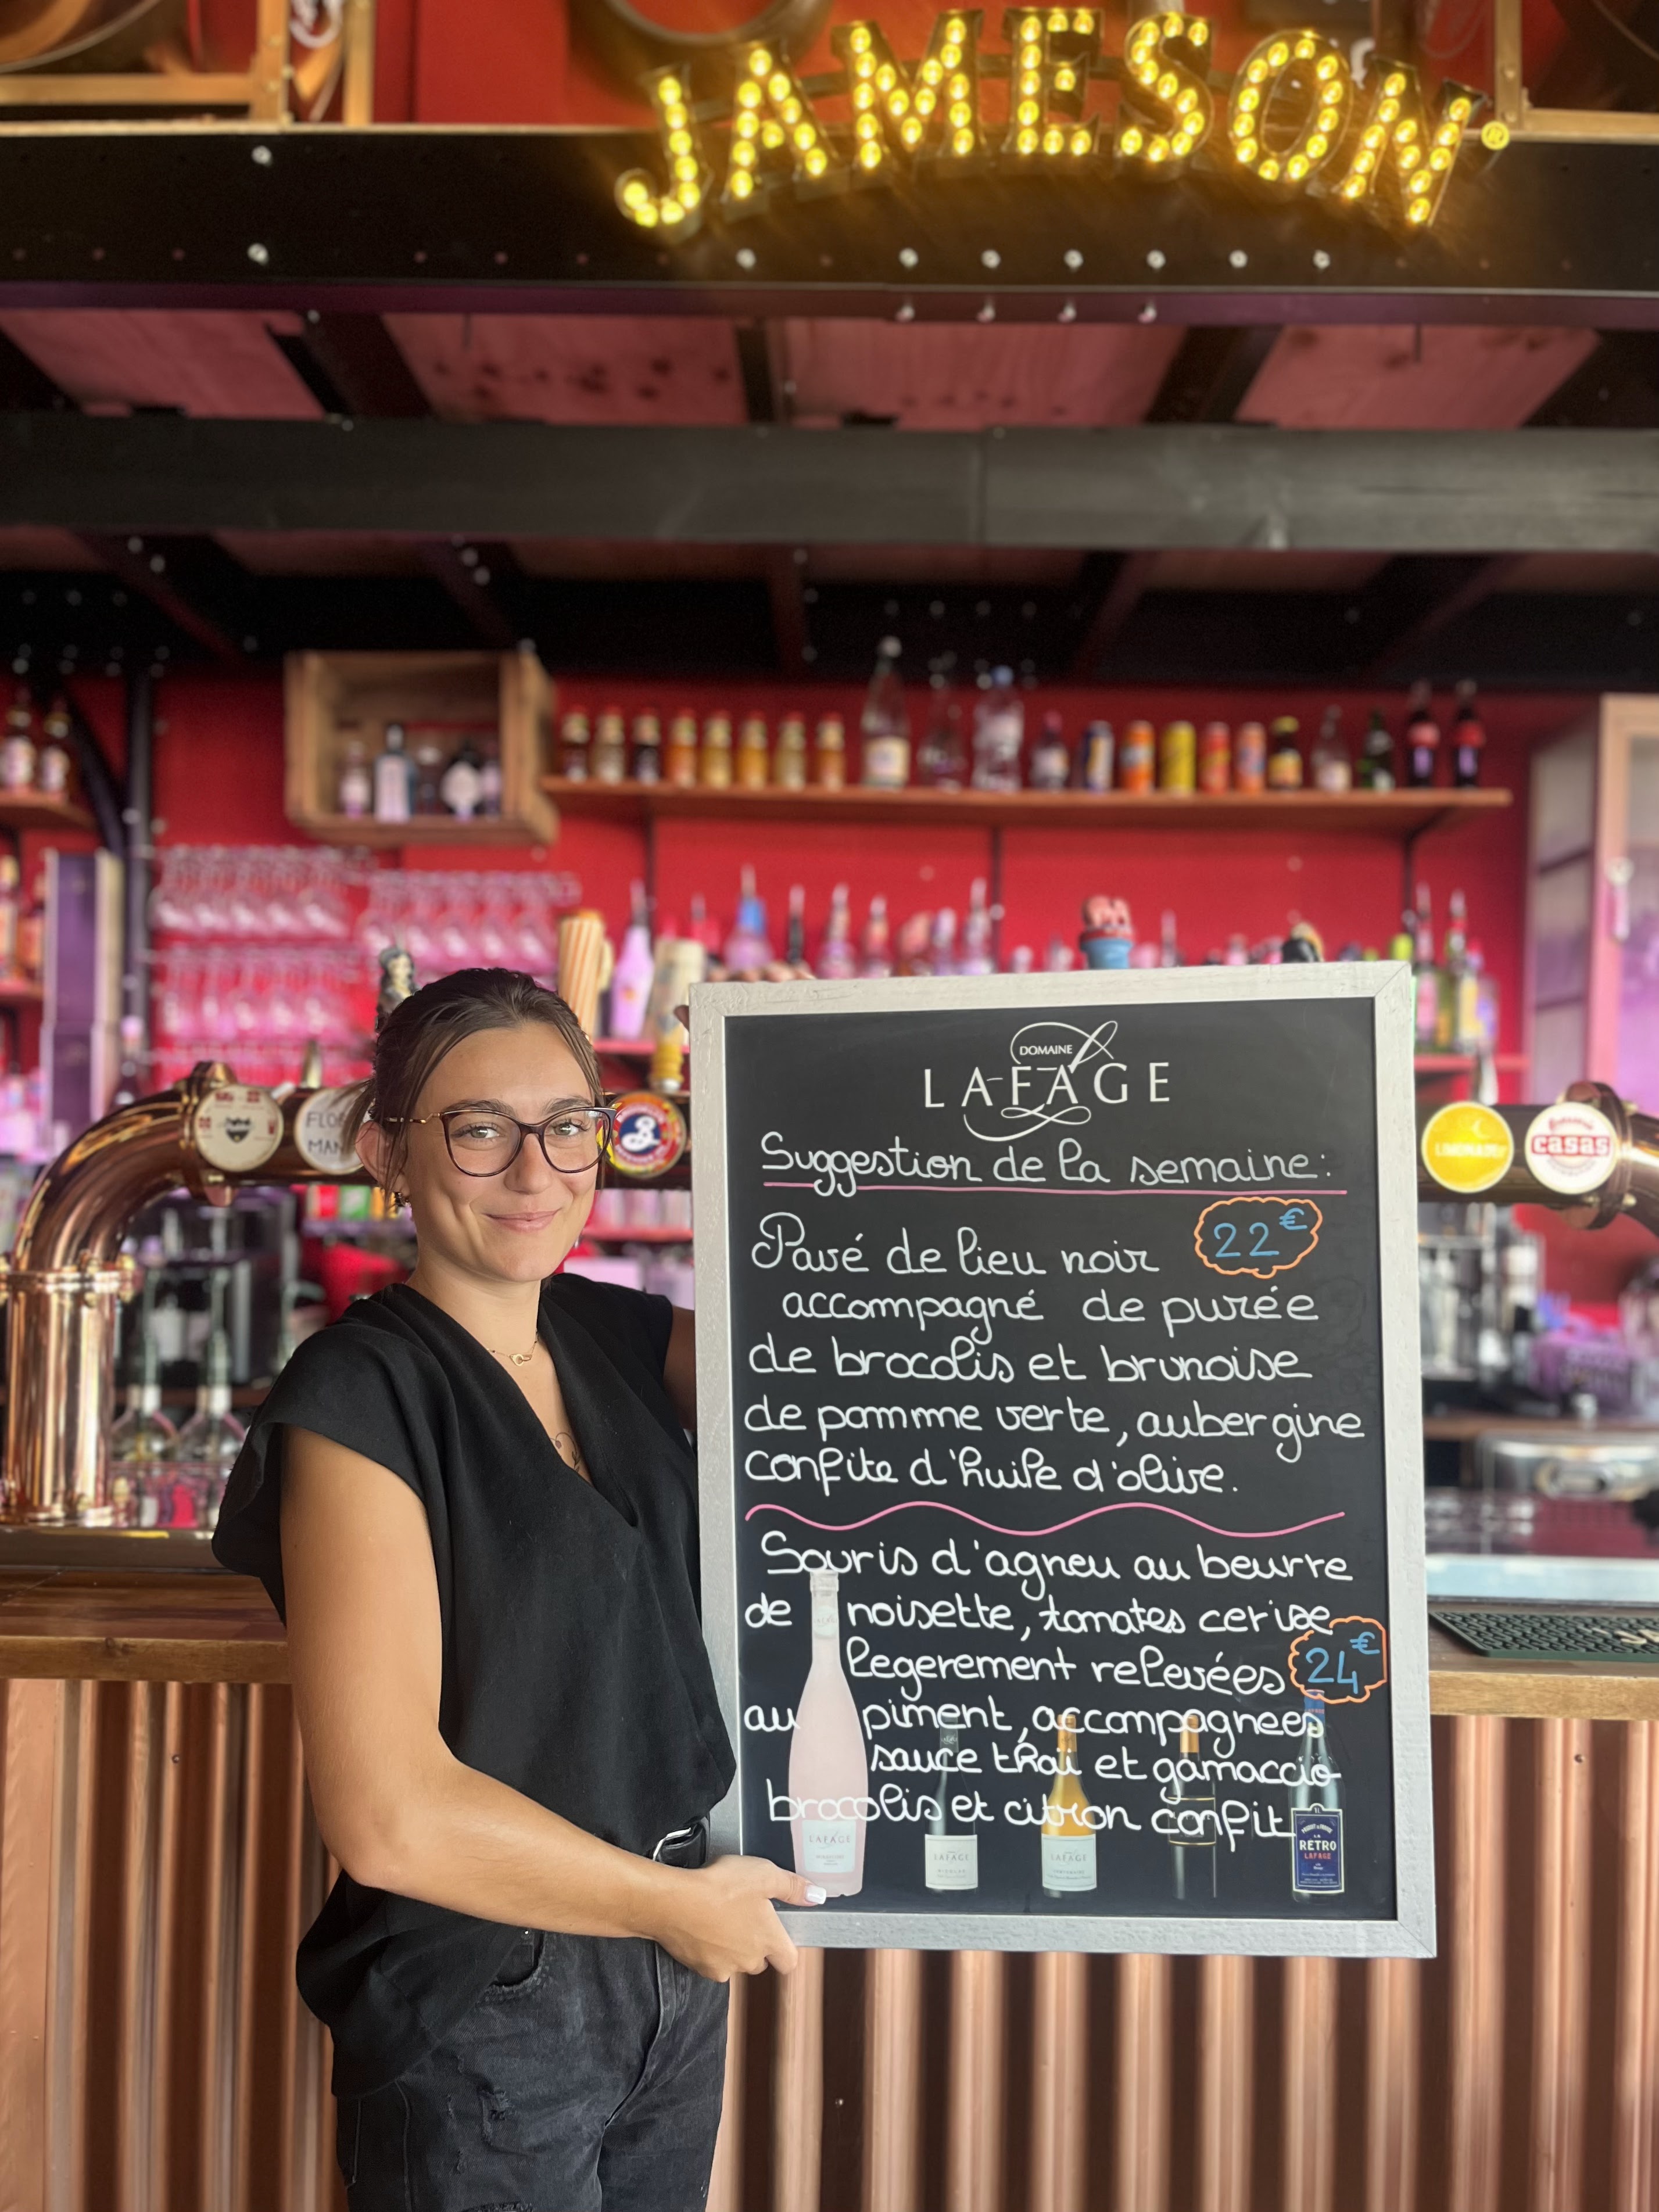 JAMESON
FLOR
MAN
LIMONADE
CASAS
DOMAINE
LAFAGE
Suggestion de la semaine:
Pavé de lieu noir 22€
accompagné de purée
de brocolis et brunoise
de pomme verte, aubergine
confite d'huile d'olive.
Souris d'agneu au beurre
de noisette, tomates cerise
legerement relevées 24€
au piment, accompagnees
sauce thaï et gamaccio
brocolis et citron confit
LAFAGE
LAFAGE
LAFAGE
LA
RETRO
LAFAGE